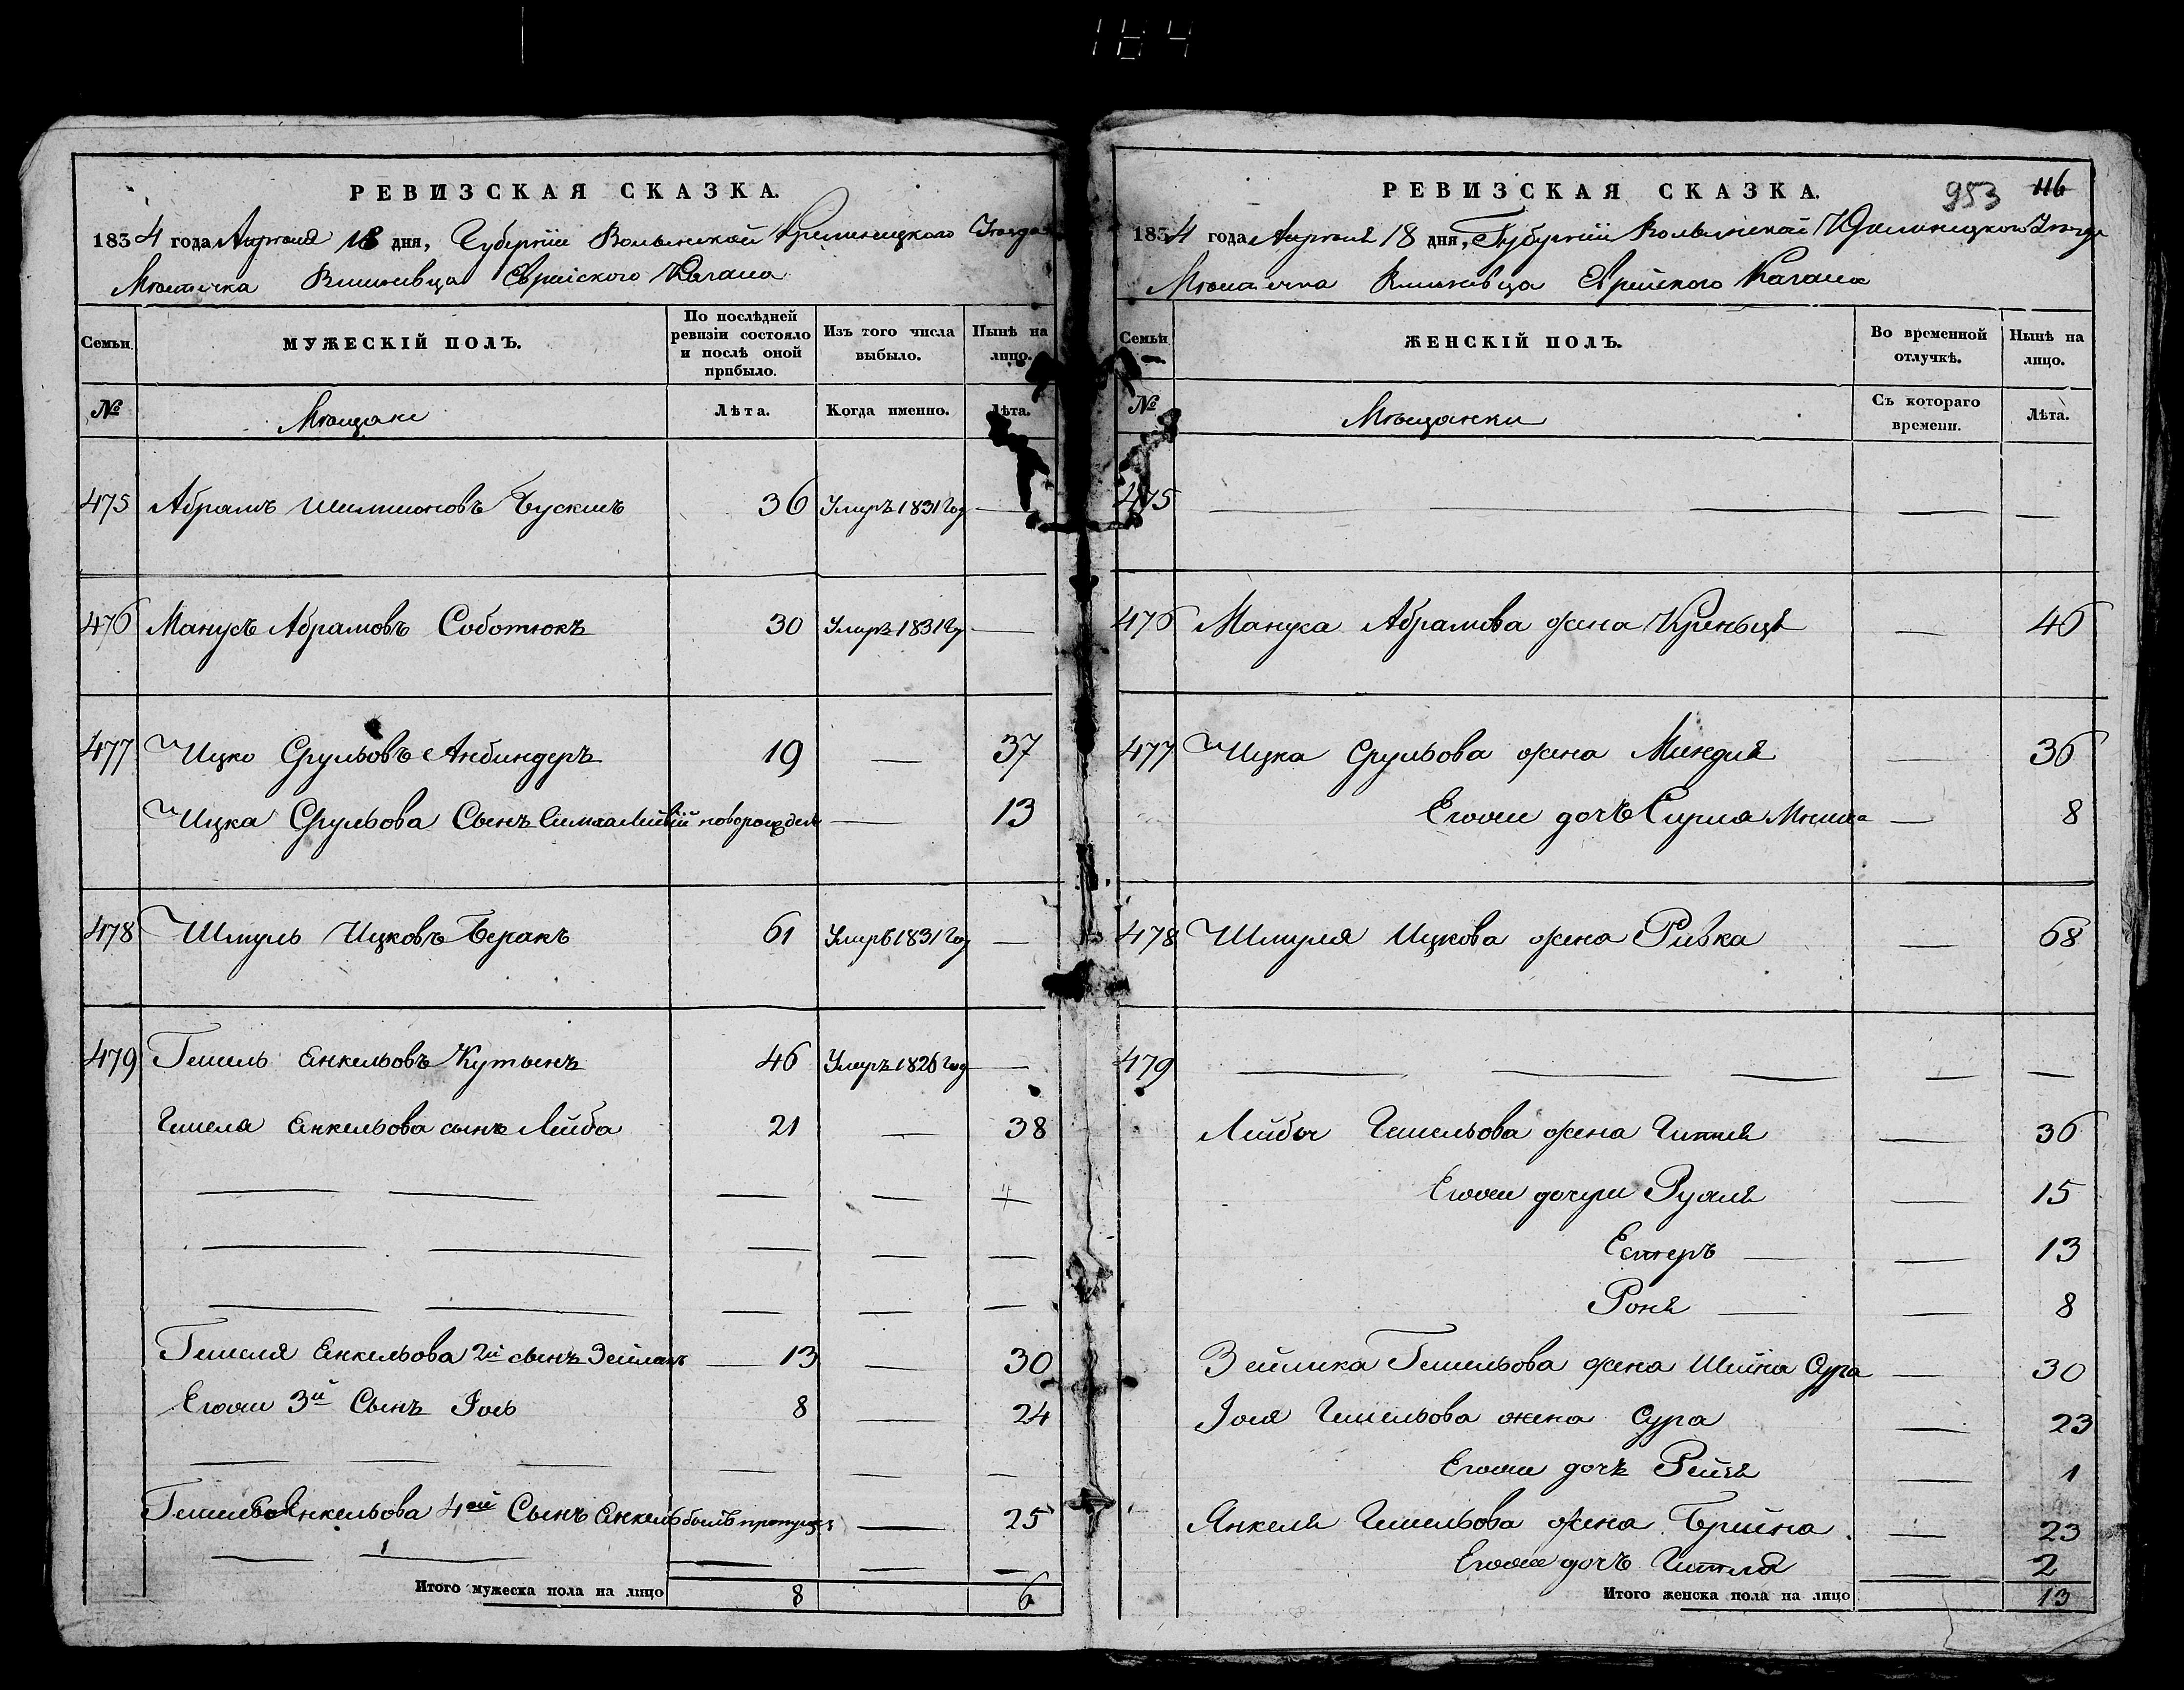 184
РЕВИЗСКАЯ СКАЗКА.
1834 года Апреля 18 дня, Губерніи Волынской Кременецкого Уезда
Местечка Вишневца Еврейского Кагала
Семьи
МУЖЕСКІЙ ПОЛЪ.
По послѣдней ревизіи состояло и послѣ оной прибыло.
Изъ того числа выбыло.
Нынѣ на лицо.
№
Мещане
Лѣта.
Когда именно.
Лѣта.
475 Абрамъ Шимшоновъ Бускисъ 36 Умеръ 1831 год —
476 Манусъ Абрамовъ Соботюкъ 30 Умеръ 1831 г —
477 Ицко Срульовъ Анбиндеръ 19 — 37
Ицка Срульова Сынъ Симха Лейбъ новорожден — 13
478 Шмуль Ицковъ Беракъ 61 Умеръ 1831 год —
479 Гешель Енкельовъ Кутынъ 46 Умеръ 1826 год —
Гешеля Енкельова сынъ Лейба 21 — 38
— — — — —
— — — — —
— — — — —
Гешеля Енкельова 2й сынъ Зейликъ — 13 — 30
Егоже 3й Сынъ Іось 8 — 24
— — — — — —
Гешеля Енкельова 4ой Сынъ Енкель былъ пропущен — 25
— — — — —
Итого мужеска пола на лицо 8 6
РЕВИЗСКАЯ СКАЗКА.
953 116
1834 года Апреля 18 дня, Губерніи Волынской Кременецкого Уезда
Местечка Вишневца Еврейского Кагала
Семьи
ЖЕНСКІЙ ПОЛЪ.
Во временной отлучкѣ.
Нынѣ на лицо.
№
Мещанки
Съ котораго времени.
Лѣта.
475 — — — — —
476 Мануса Абрамова жена Креньця — 46
477 Ицка Срульова жена Миндля — 36
Егоже дочь Сирля — 8
478 Шмуля Ицкова жена Ривка — 68
479 — — — — —
Лейбы Гешельова жена Гитля — 36
Егоже дочери Рухля — 15
Естеръ — — 13
Роня — — 8
Зейлика Гешельова жена Шейна Сура — 30
Іося Гешельова жена Сура — 23
Егоже дочь Рейзя — 1
Янкеля Гешельова жена Брейна — 23
Егоже дочъ Гитля — 2
Итого женска пола на лицо 13